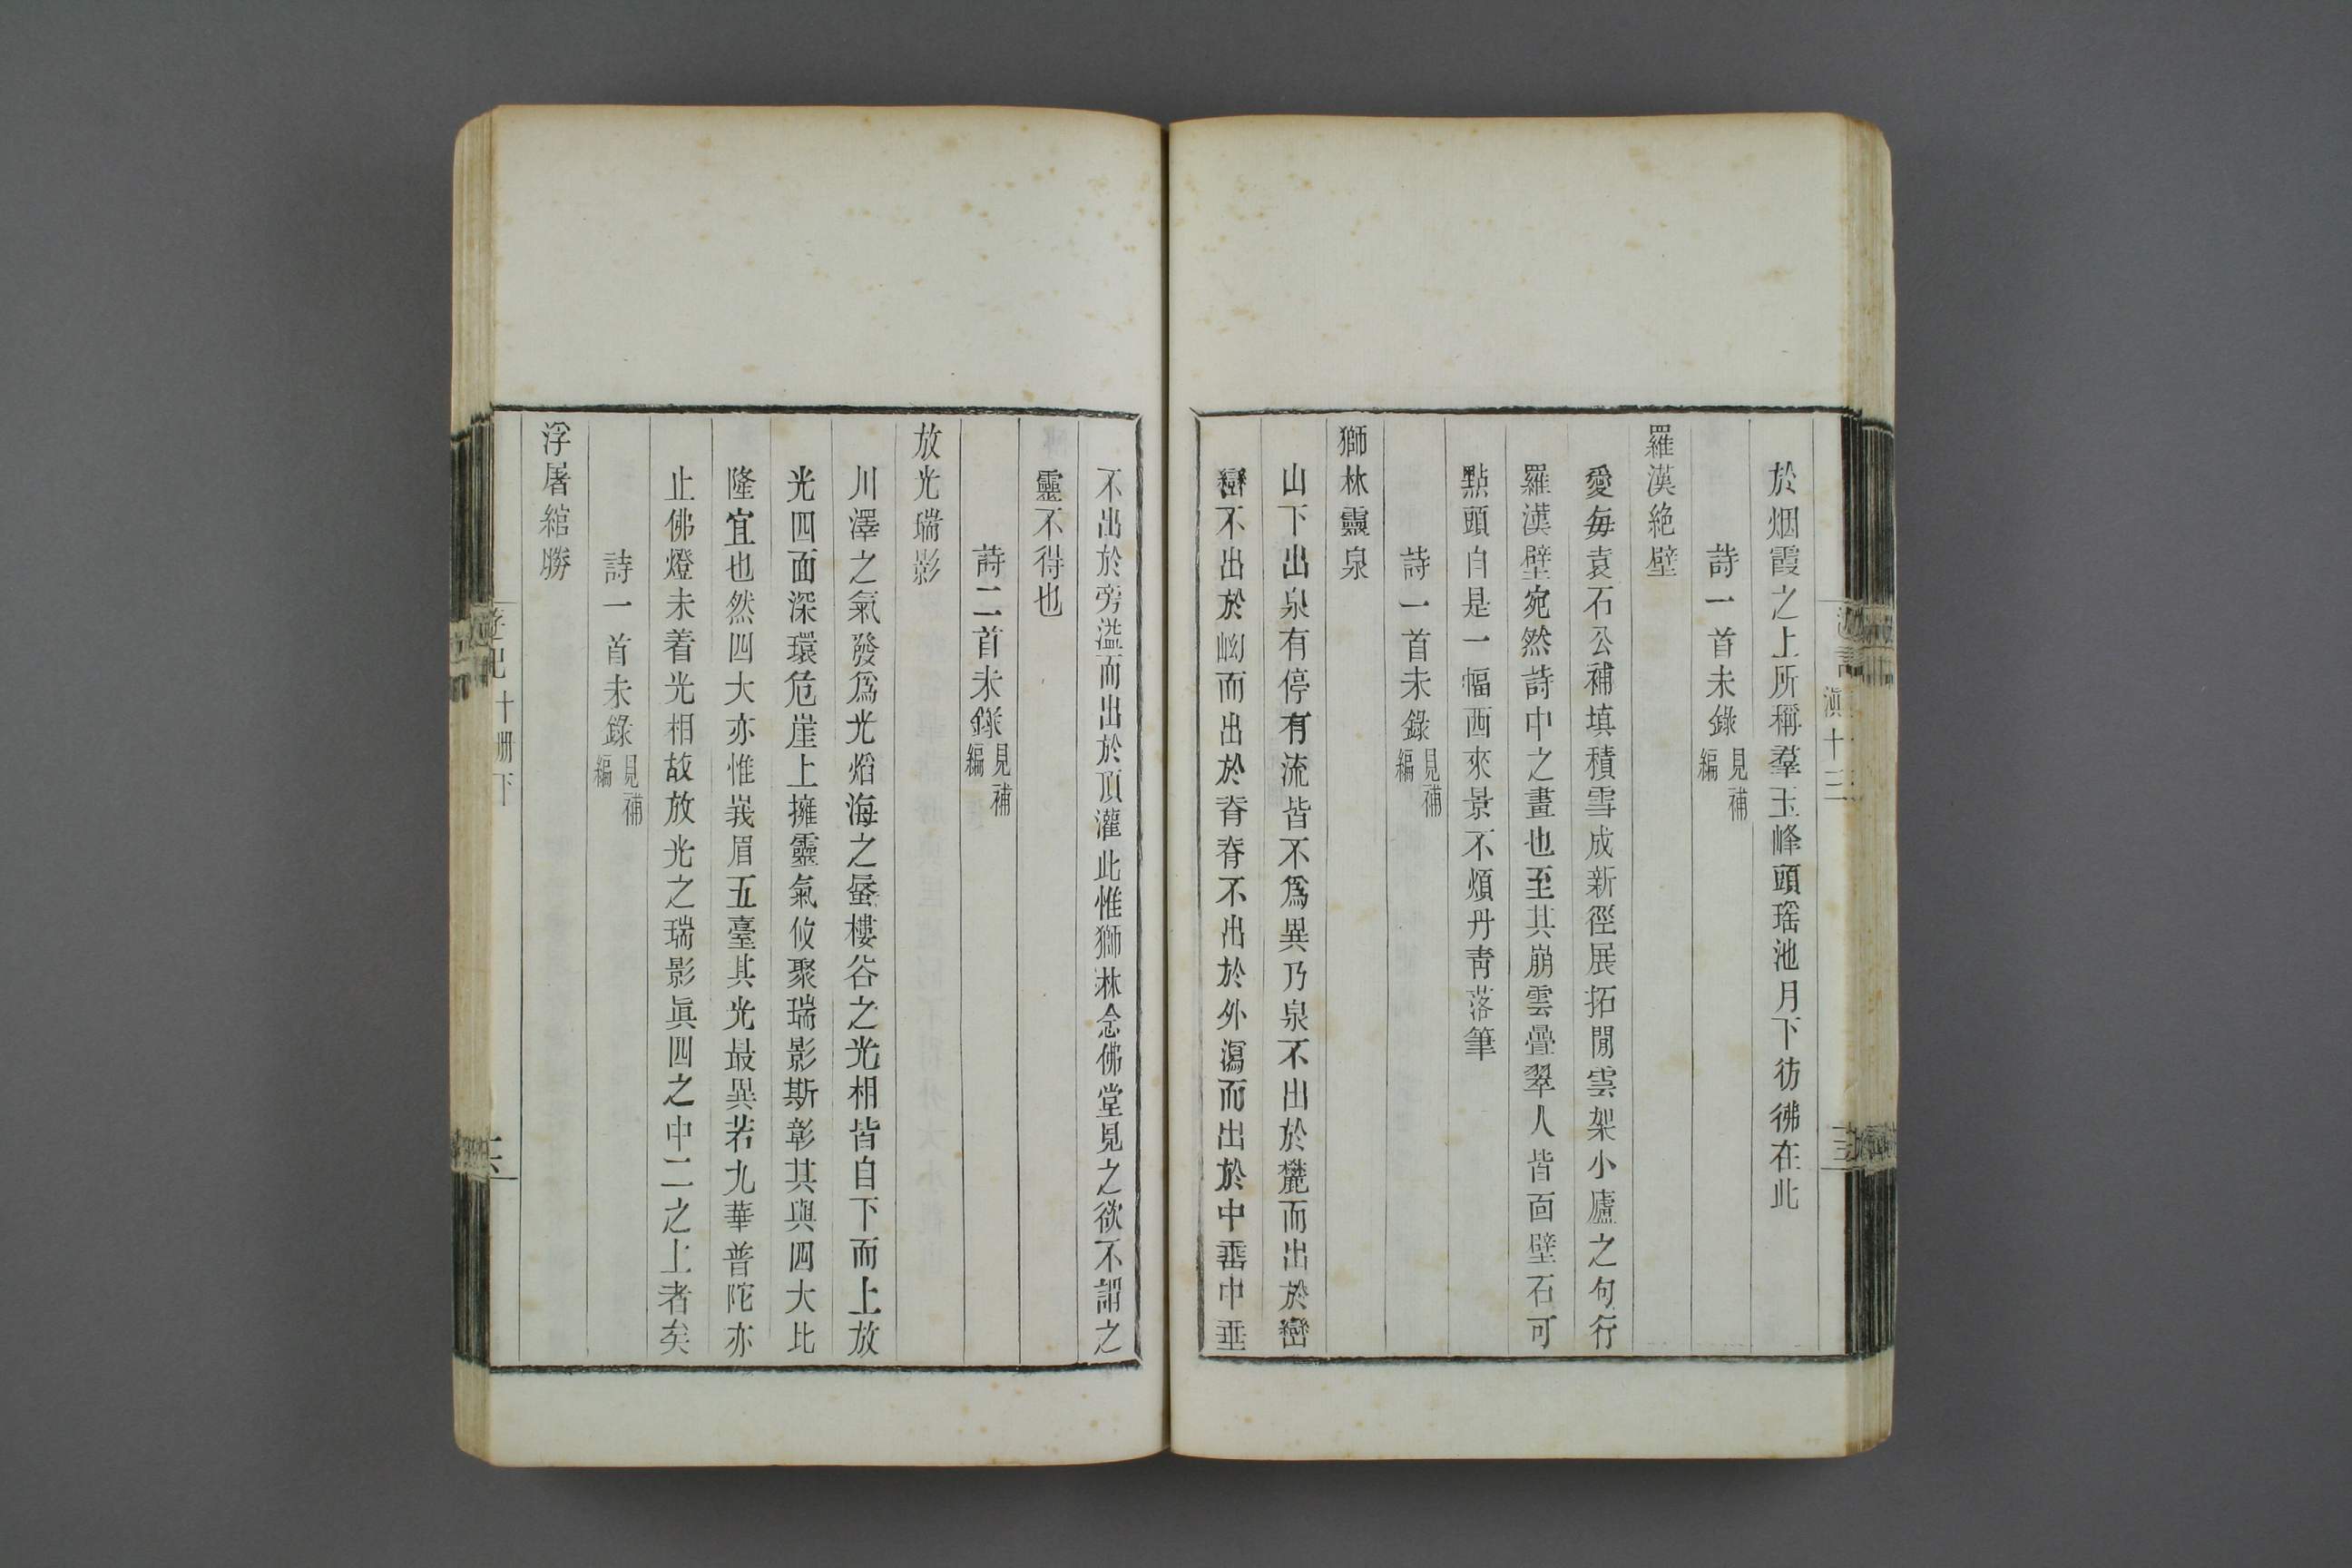 於烟霞之上所稱羣玉峰頭瑶池月下彷彿在此
詩一首未錄見補編
羅漢絶壁
愛每袁石公補填積雪成新徑展拓閒雲架小廬之句行
羅漢壁宛然詩中之畫也至其崩雲疊翠人皆面壁石可
點頭自是一幅西來景不煩丹靑落筆
詩一首未錄見補編
獅林靈泉
山下出泉有停有流皆不爲異乃泉不出於麓而出於巒
巒不出於㘭而出於脊脊不出於外瀉而出於中垂中垂
不出於旁溢而出於頂灌此惟獅林念佛堂見之欲不謂之
靈不得也
詩二首未錄見補編
放光瑞影
川澤之氣發爲光熖海之蜃樓谷之光相皆自下而上放
光四面深環危崖上擁靈氣攸聚瑞影斯彰其與四大比
隆宜也然四大亦惟峩眉五臺其光最異若九華普陀亦
止佛燈未着光相故放光之瑞影眞四之中二之上者矣
詩一首未錄見補編
浮屠綰勝
遊記十册下